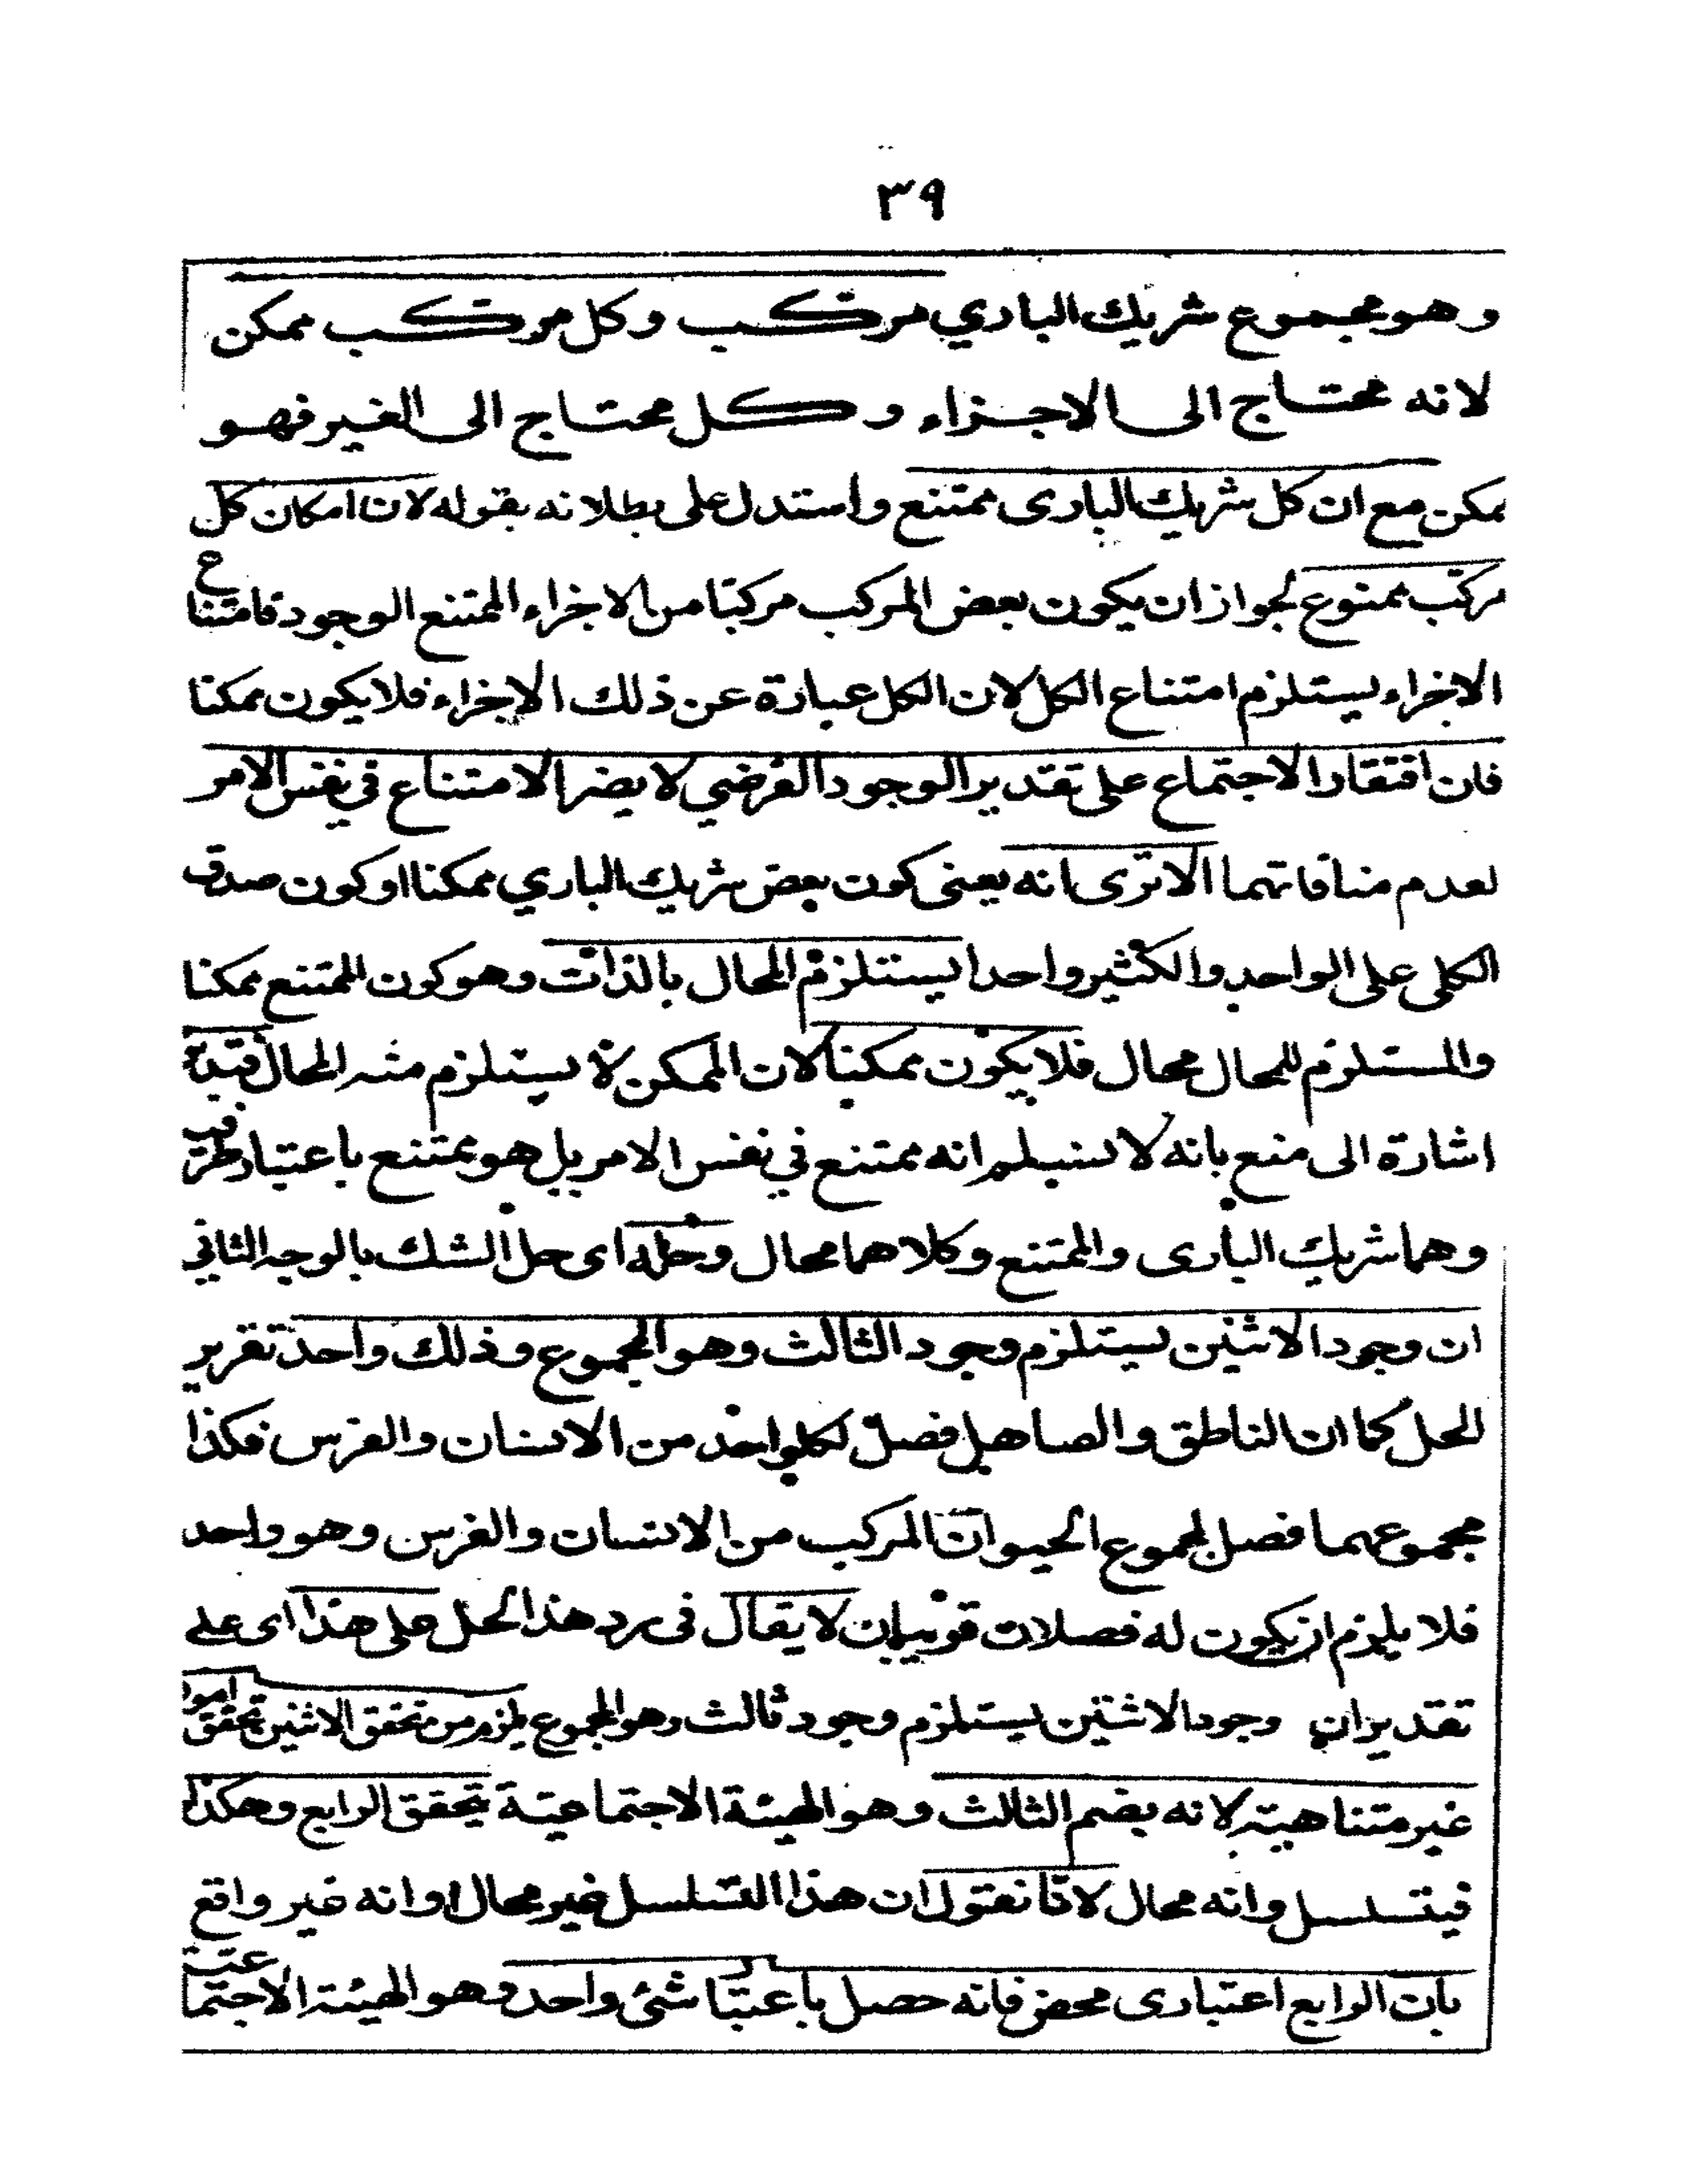 ٣٩
وهو مجموع شريك الباري مركب وكل مركب ممكن
لانه محتاج الى الاجزاء وكل محتاج الى الغير فهو
ممكن مع ان كل شريك البارى ممتنع واستدل على بطلانه بقوله لان امكان كل
مركب ممنوع لجواز ان يكون بعض المركب مركبا من الاجزاء الممتنع الوجود فامتناع
الاجزاء يستلزم امتناع الكل لان الكل عبارة عن ذلك الاجزاء فلا يكون ممكنا
فان افتقار الاجتماع على تقدير الوجود الفرضي لا يضر الامتناع في نفس الامر
لعدم منافاتهما الا ترى انه يعنى كون بعض شريك الباري ممكنا او كون صدق
الكلى على الواحد والكثير واحدا يستلزم المحال بالذات وهو كون الممتنع ممكنا
والمستلزم للمحال محال فلا يكون ممكنا لان الممكن لا يستلزم منه المحال فتدبر
اشارة الى منع بانه لا نسلم انه ممتنع في نفس الامر بل هو ممتنع باعتبار طرفيه
وهما شريك البارى والممتنع وكلاهما محال وحله اى حل الشك بالوجه الثاني
ان وجود الاثنين يستلزم وجود الثالث وهو المجموع وذلك واحد تقرير
الحل كما ان الناطق والصاهل فصل لكل واحد من الانسان والفرس فكذا
مجموعهما فصل لمجموع الحيوان المركب من الانسان والفرس وهو واحد
فلا يلزم ان يكون له فصلان قريبان لا يقال فى رد هذا الحل على هذا اى على
تقدير ان وجود الاثنين يستلزم وجود ثالث وهو المجموع يلزم من تحقق الاثنين تحقق امور
غير متناهية لانه يضم الثالث وهو الهيئة الاجتماعية يتحقق الرابع وهكذا
فيتسلسل وانه محال لانا نقول ان هذا التسلسل غير محال اوانه غير واقع
بان الرابع اعتبارى محض فانه حصل باعتبار شئ واحد وهو الهيئة الاجتماعية